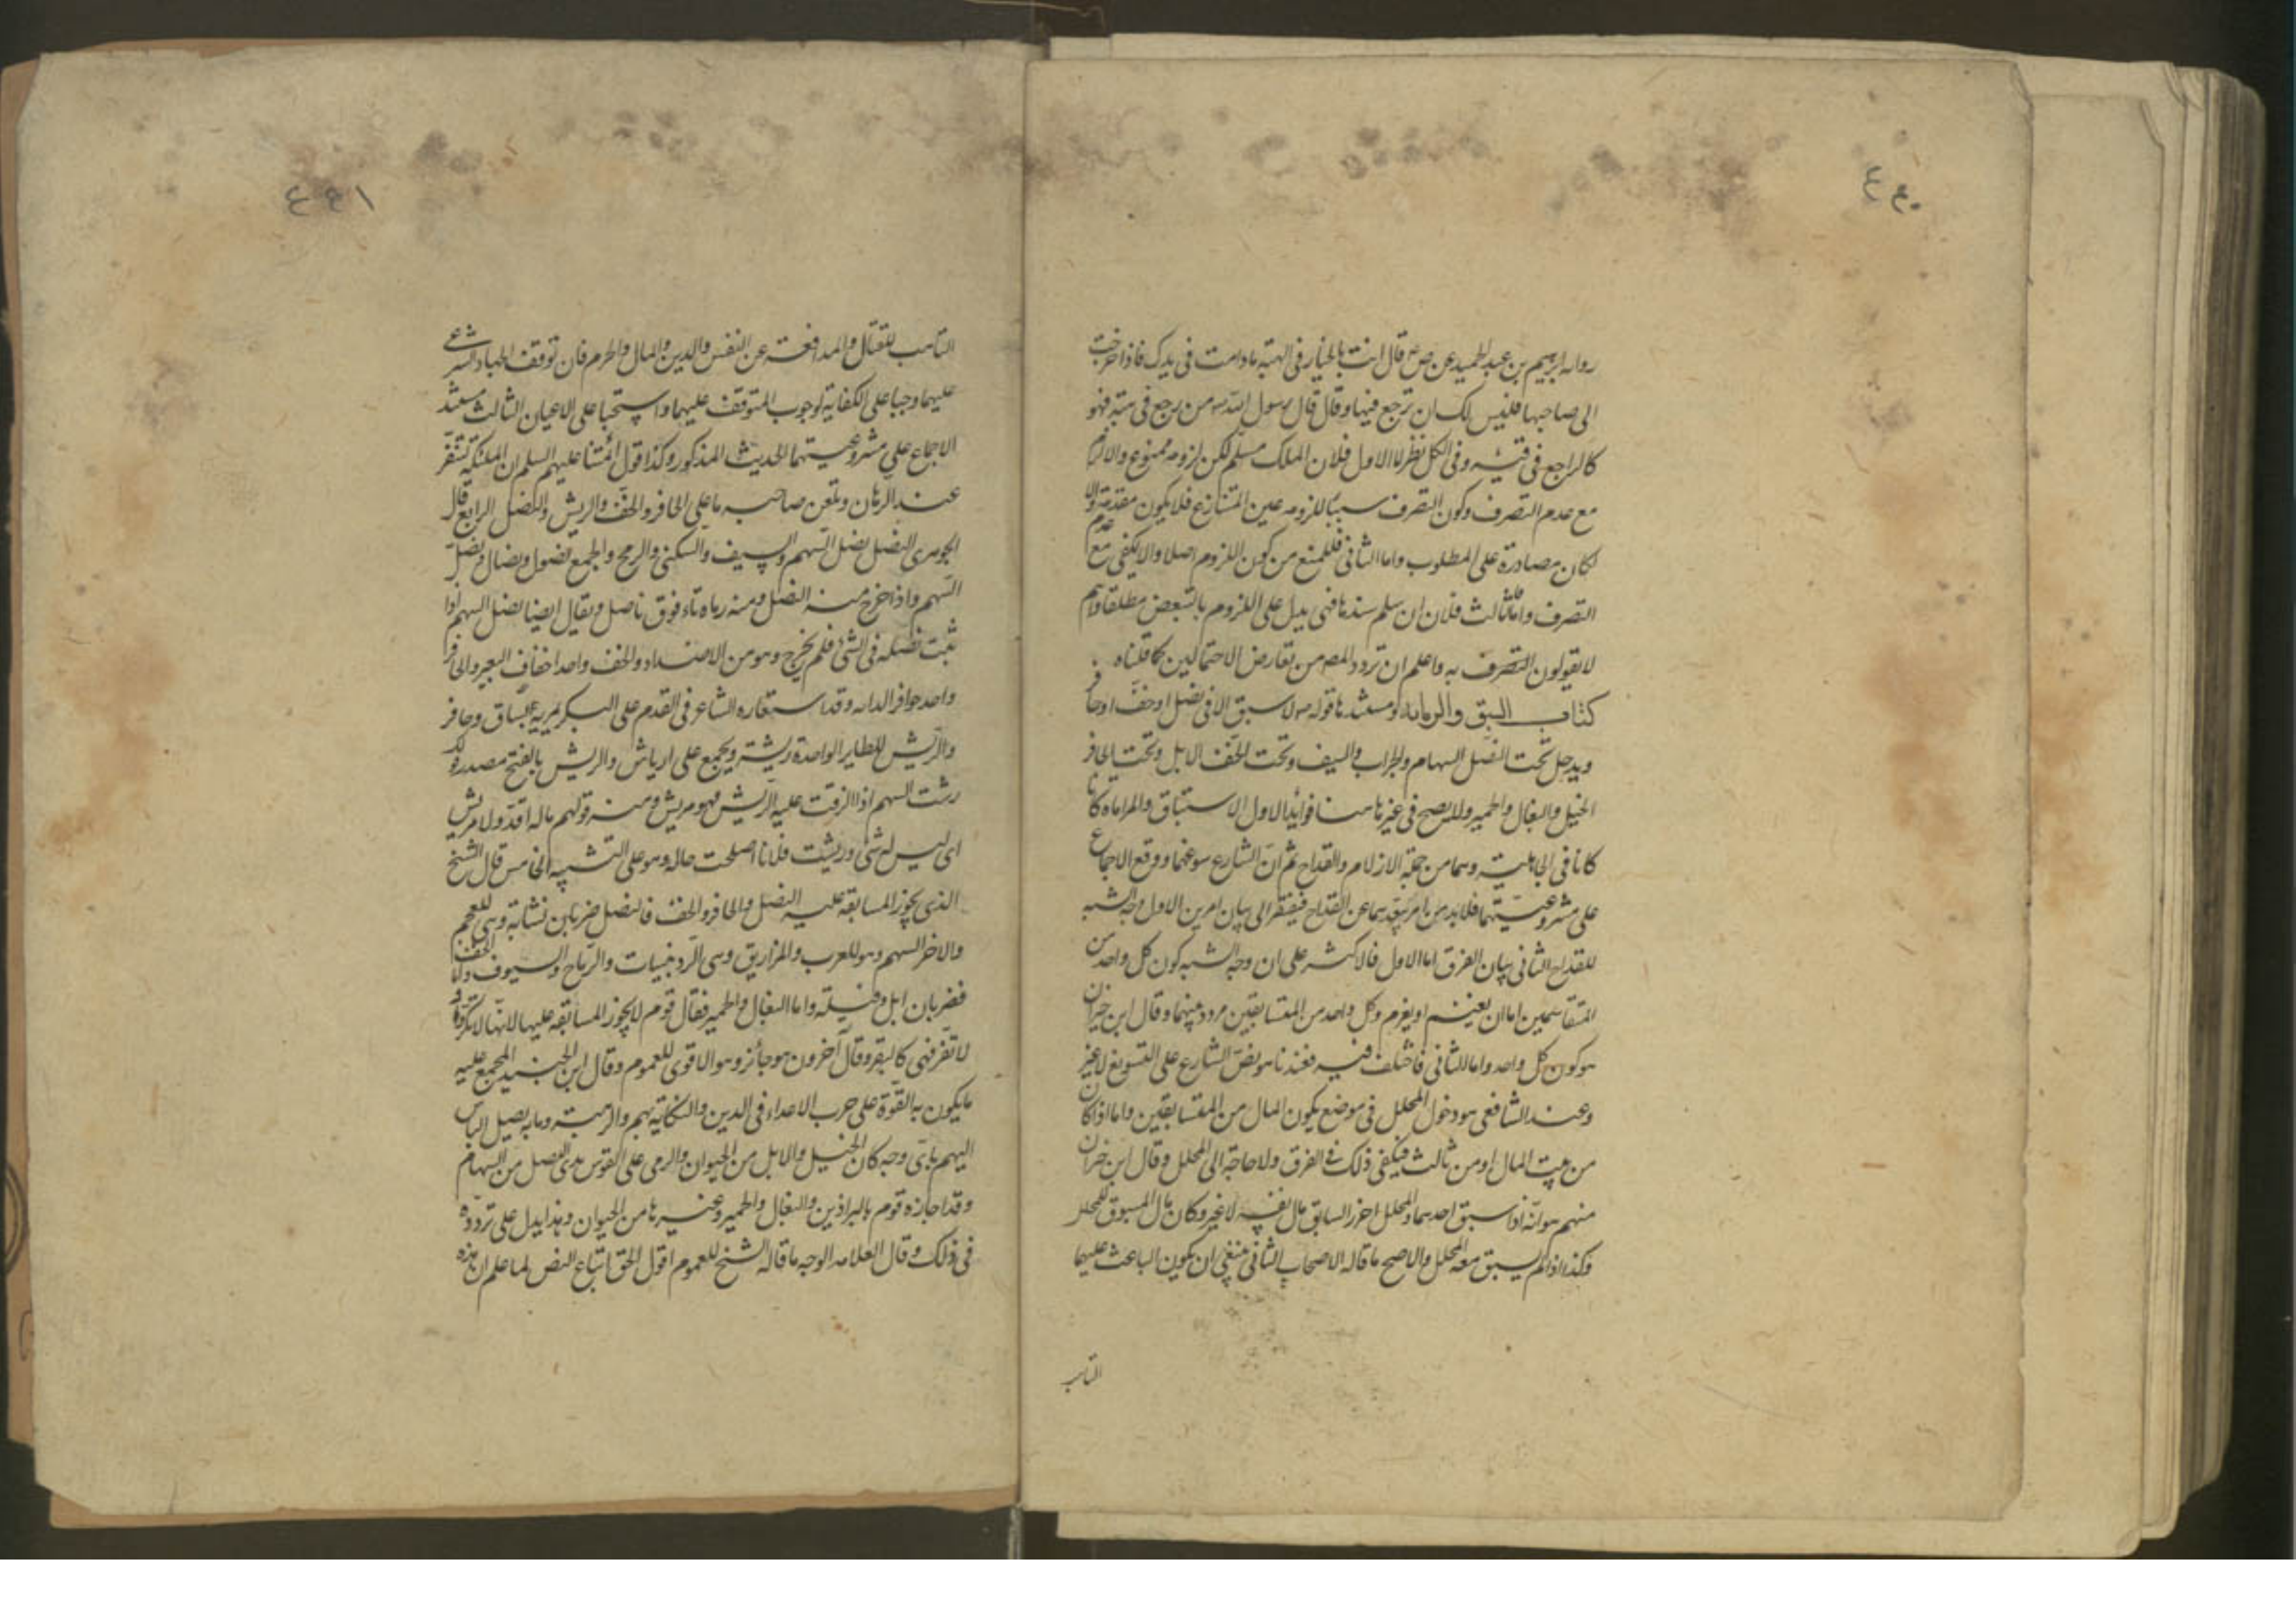 ٤٤٠
رواه ابرهيم بن عبد الحميد عن ص ع قال انت بالخيار فى الهبة مادامت فى يدك فاذا خرجت
الى صاحبها فليس لك ان ترجع فيها وقال قال رسول الله ص من رجع فى هبته فهو
كالراجع فى قيئه وفى الكل نظر اما الاول فلان الملك مسلم لكن لزومه ممنوع والا لزم
مع عدم التصرف وكون التصرف سببا للزومه عين المتنازع فلا يكون مقدمة والا
لكان مصادرة على المطلوب واما الثانى فللمنع من كون اللزوم اصلا والا لكفى مع عدم
التصرف واما الثالث فلان ان سلم سندها فهى يدل على اللزوم بالتعويض مطلقا وانتم
لا يقولون التصرف به واعلم ان تردد المص من تعارض الاحتمالين كما قلناه
كتاب السبق والرماية ومستندها قوله ص لا سبق الا فى نصل او خف او حافر
ويدخل تحت النصل السهام والحراب والسيف وتحت الخف الابل وتحت الحافر
الخيل والبغال والحمير ولا يصح فى غيرها هنا فوائد الاول الاستباق والمراماة كانا
كانا فى الجاهلية وهما من جملة الازلام والقداح ثم ان الشارع سوغهما ووقع الاجماع
على مشروعيتهما فلا بد من امر يميزهما عن القداح فيفتقر الى بيان امرين الاول وجه الشبه
للقداح الثانى بيان الفرق اما الاول فالاكثر على ان وجه الشبه كون كل واحد من
المتقاسمين اما ان يغنم او يغرم وكل واحد من المتسابقين مردد بينهما وقال ابن خيران
هو كون كل واحد واما الثانى فاختلف فيه فعندنا هو نص الشارع على التسويغ لا غير
وعند الشافعى هو دخول المحلل فى موضع يكون المال من المتسابقين واما اذا كان
من بيت المال او من ثالث فيكفى ذلك فى الفرق ولا حاجة الى المحلل وقال ابن خيران
منهم هو انه اذا سبق احدهما والمحلل احرز السابق مال نفسه لا غير وكان مال المسبوق للمحلل
وكذا اذا لم يسبق معه المحلل والاصح ما قاله الاصحاب الثانى ينبغى ان يكون الباعث عليهما
التاهب
٤٤١
التاهب للقتال والمدافعة عن النفس والدين والمال والحرم فان توقف الجهاد الشرعى
عليهما وجبا على الكفاية لوجوب المتوقف عليهما واستحبا على الاعيان الثالث مستند
الاجماع على مشروعيتهما الحديث المذكور وكذا قول ائمتنا عليهم السلم ان الملئكة تنفر
عند الرهان وتلعن صاحبه ما على الحافر والخف والريش والنصل الرابع قال
الجوهرى النصل نصل السهم والسيف والسكين والرمح والجمع نصول ونصال ونصل
السهم واذا خرج منه النصل ومنه رماه بافوق ناصل ويقال ايضا نصل السهم اذا
ثبت نصله فى الشئ فلم يخرج وهو من الاضداد والخف واحد اخفاف البعير والحافر
واحد حوافر الدابه وقد استعاره الشاعر فى القدم على البكر يمريه بساق وحافر
والريش للطاير الواحدة ريشة ويجمع على ارياش والريش بالفتح مصدر قولك
رشت السهم اذا الزقت عليه الريش فهو مريش ومنه قولهم ماله اقذ ولا مريش
اى ليس له شئ وريشت فلانا اصلحت حاله وهو على التشبيه الخامس قال الشيخ
الذى يجوز المسابقة عليه النصل والحافر والخف فالنصل ضربان نشابة وهى للعجم
والاخر السهم وهو للعرب والمزاريق وهى الردينيات والرماح والسيوف والخف
فضربان ابل وفيلة واما البغال والحمير فقال قوم لا يجوز المسابقة عليها لانها لا تكر و
لا تفر فهى كالبقر وقال آخرون هو جائز وهو الاقوى للعموم وقال ابن الجنيد المجمع عليه
ما يكون به القوة على حرب الاعداء فى الدين والنكاية بهم والرهبة وما به يصل الباس
اليهم باى وجه كان الخيل والابل من الحيوان والرمى على القوس بذى النصل من السهام
وقد اجازه قوم بالبراذين والبغال والحمير وغيرها من الحيوان وهذا يدل على تردده
فى ذلك وقال العلامه الوجه ما قاله الشيخ للعموم اقول الحق اتباع النص لما علم ان هذه